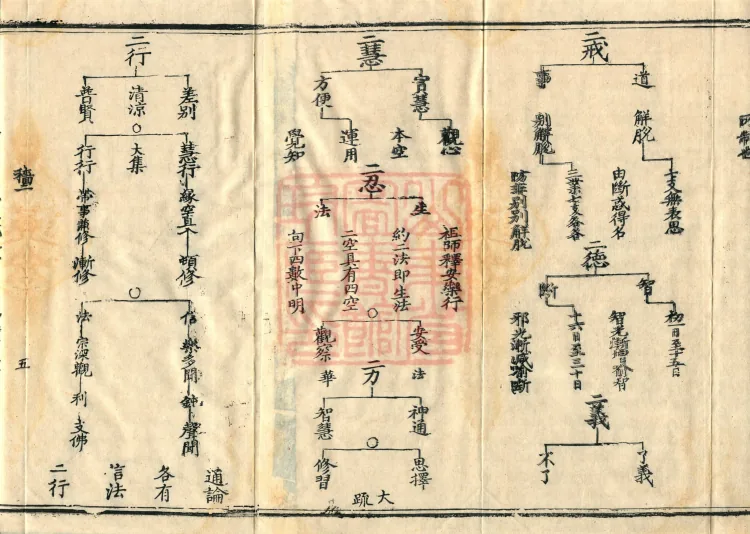 二戒
道
解脫
七支無表思
由斷惑得名
事
別解脫
三業七支各各
防非別別解脫
二德
智
初一日至十五日
智光漸增喻智
斷
十六日至三十日
邪光漸減喻斷
二義
了義
不了
二慧
實慧
觀心
本空
方便
運用
覺知
二忍
生
祖師釋安樂行
約二法即生法
法
二空具有四空
向下四數中明
安受
法
觀察
華
二力
神通
智慧
思擇
修習
大疏
二行
差別
清涼
普賢
慧行
緣空直入
頓修
大集
行行
帶事兼修
漸修
信
樂多聞
聲聞
法
宗深觀
利
支佛
通論
各有
言法
二行
五